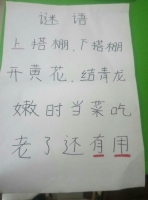 谜语
上搭棚、下搭棚
开黄花、结青龙
嫩时当菜吃
老了还有用